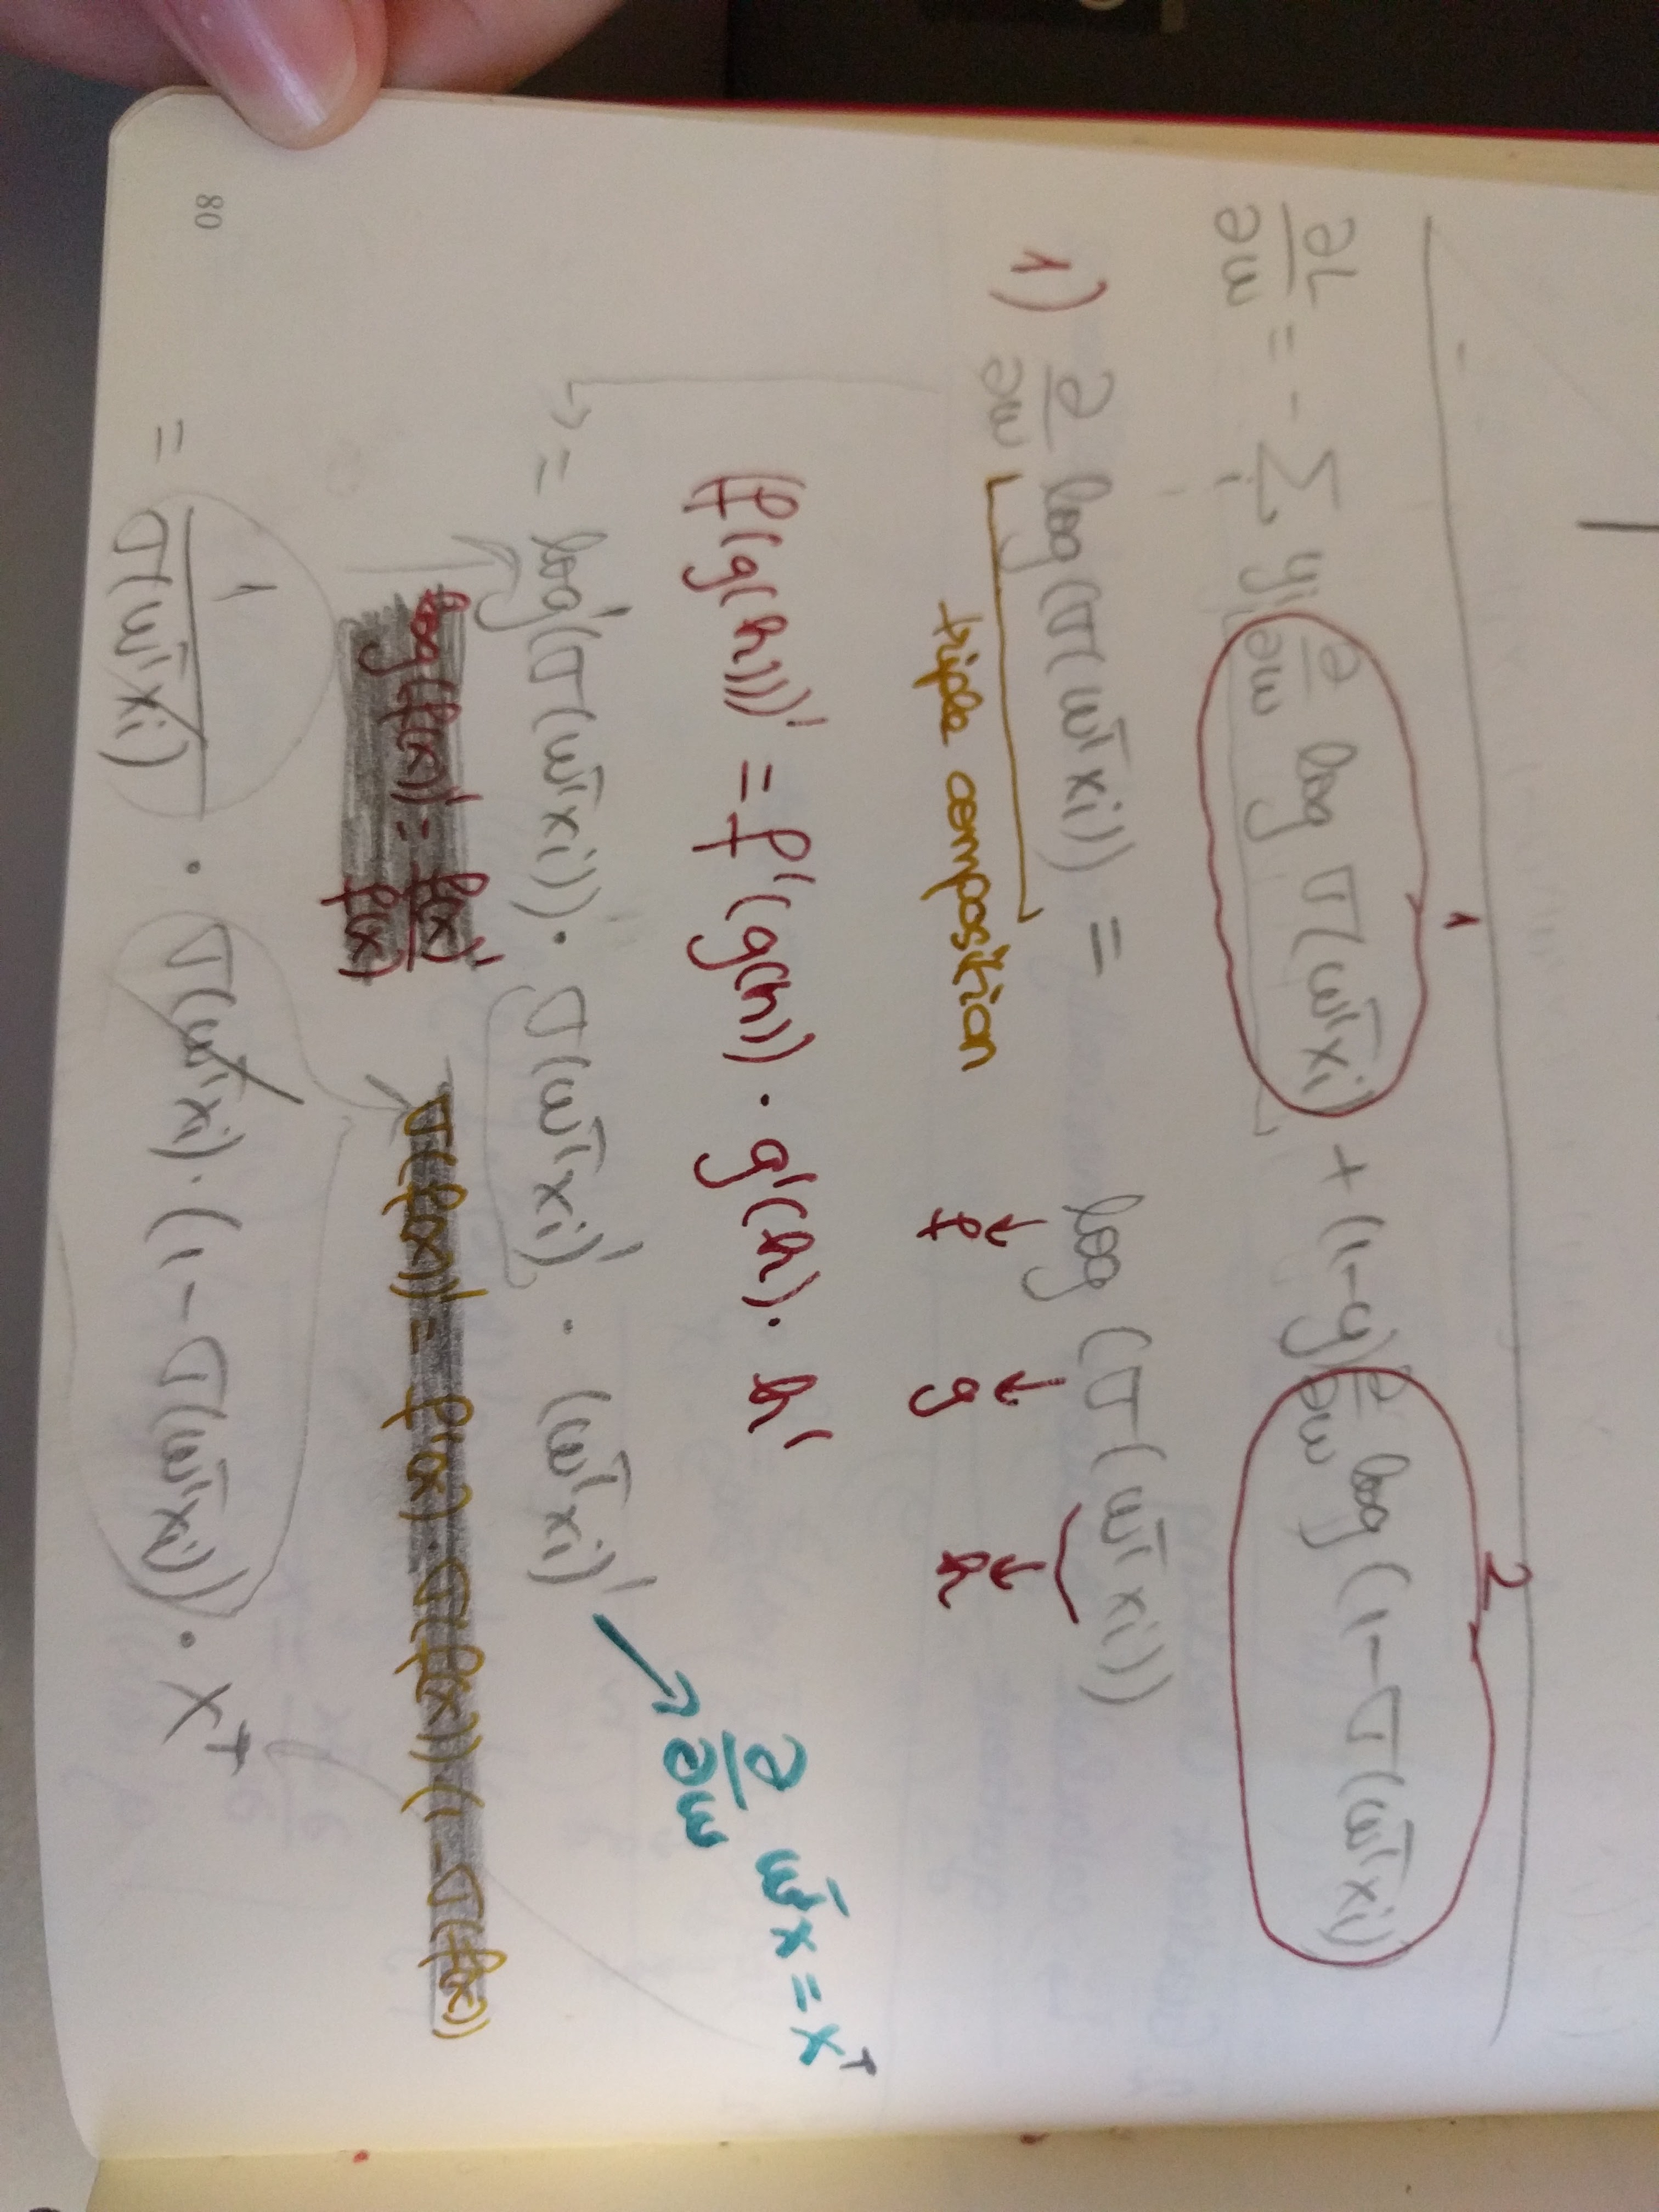 1 2
∂L/∂w = - Σ_i yi ∂/∂w log σ(wᵀxi) + (1-y) ∂/∂w log (1-σ(wᵀxi)
1) ∂/∂w log(σ(wᵀxi)) = log (σ(wᵀxi))
triple composition
f g h
(f(g(h)))' = f'(g(h)) · g'(h) · h'
∂/∂w wᵀx = xᵀ
→ = log'(σ(wᵀxi)) · σ(wᵀxi)' · (wᵀxi)'
log(f(x))' = f(x)'/f(x) σ(f(x))' = f'(x) · σ(f(x)) · (1-σ(f(x))
= 1/σ(wᵀxi) · σ(wᵀxi) · (1-σ(wᵀxi)) · xᵀ
80